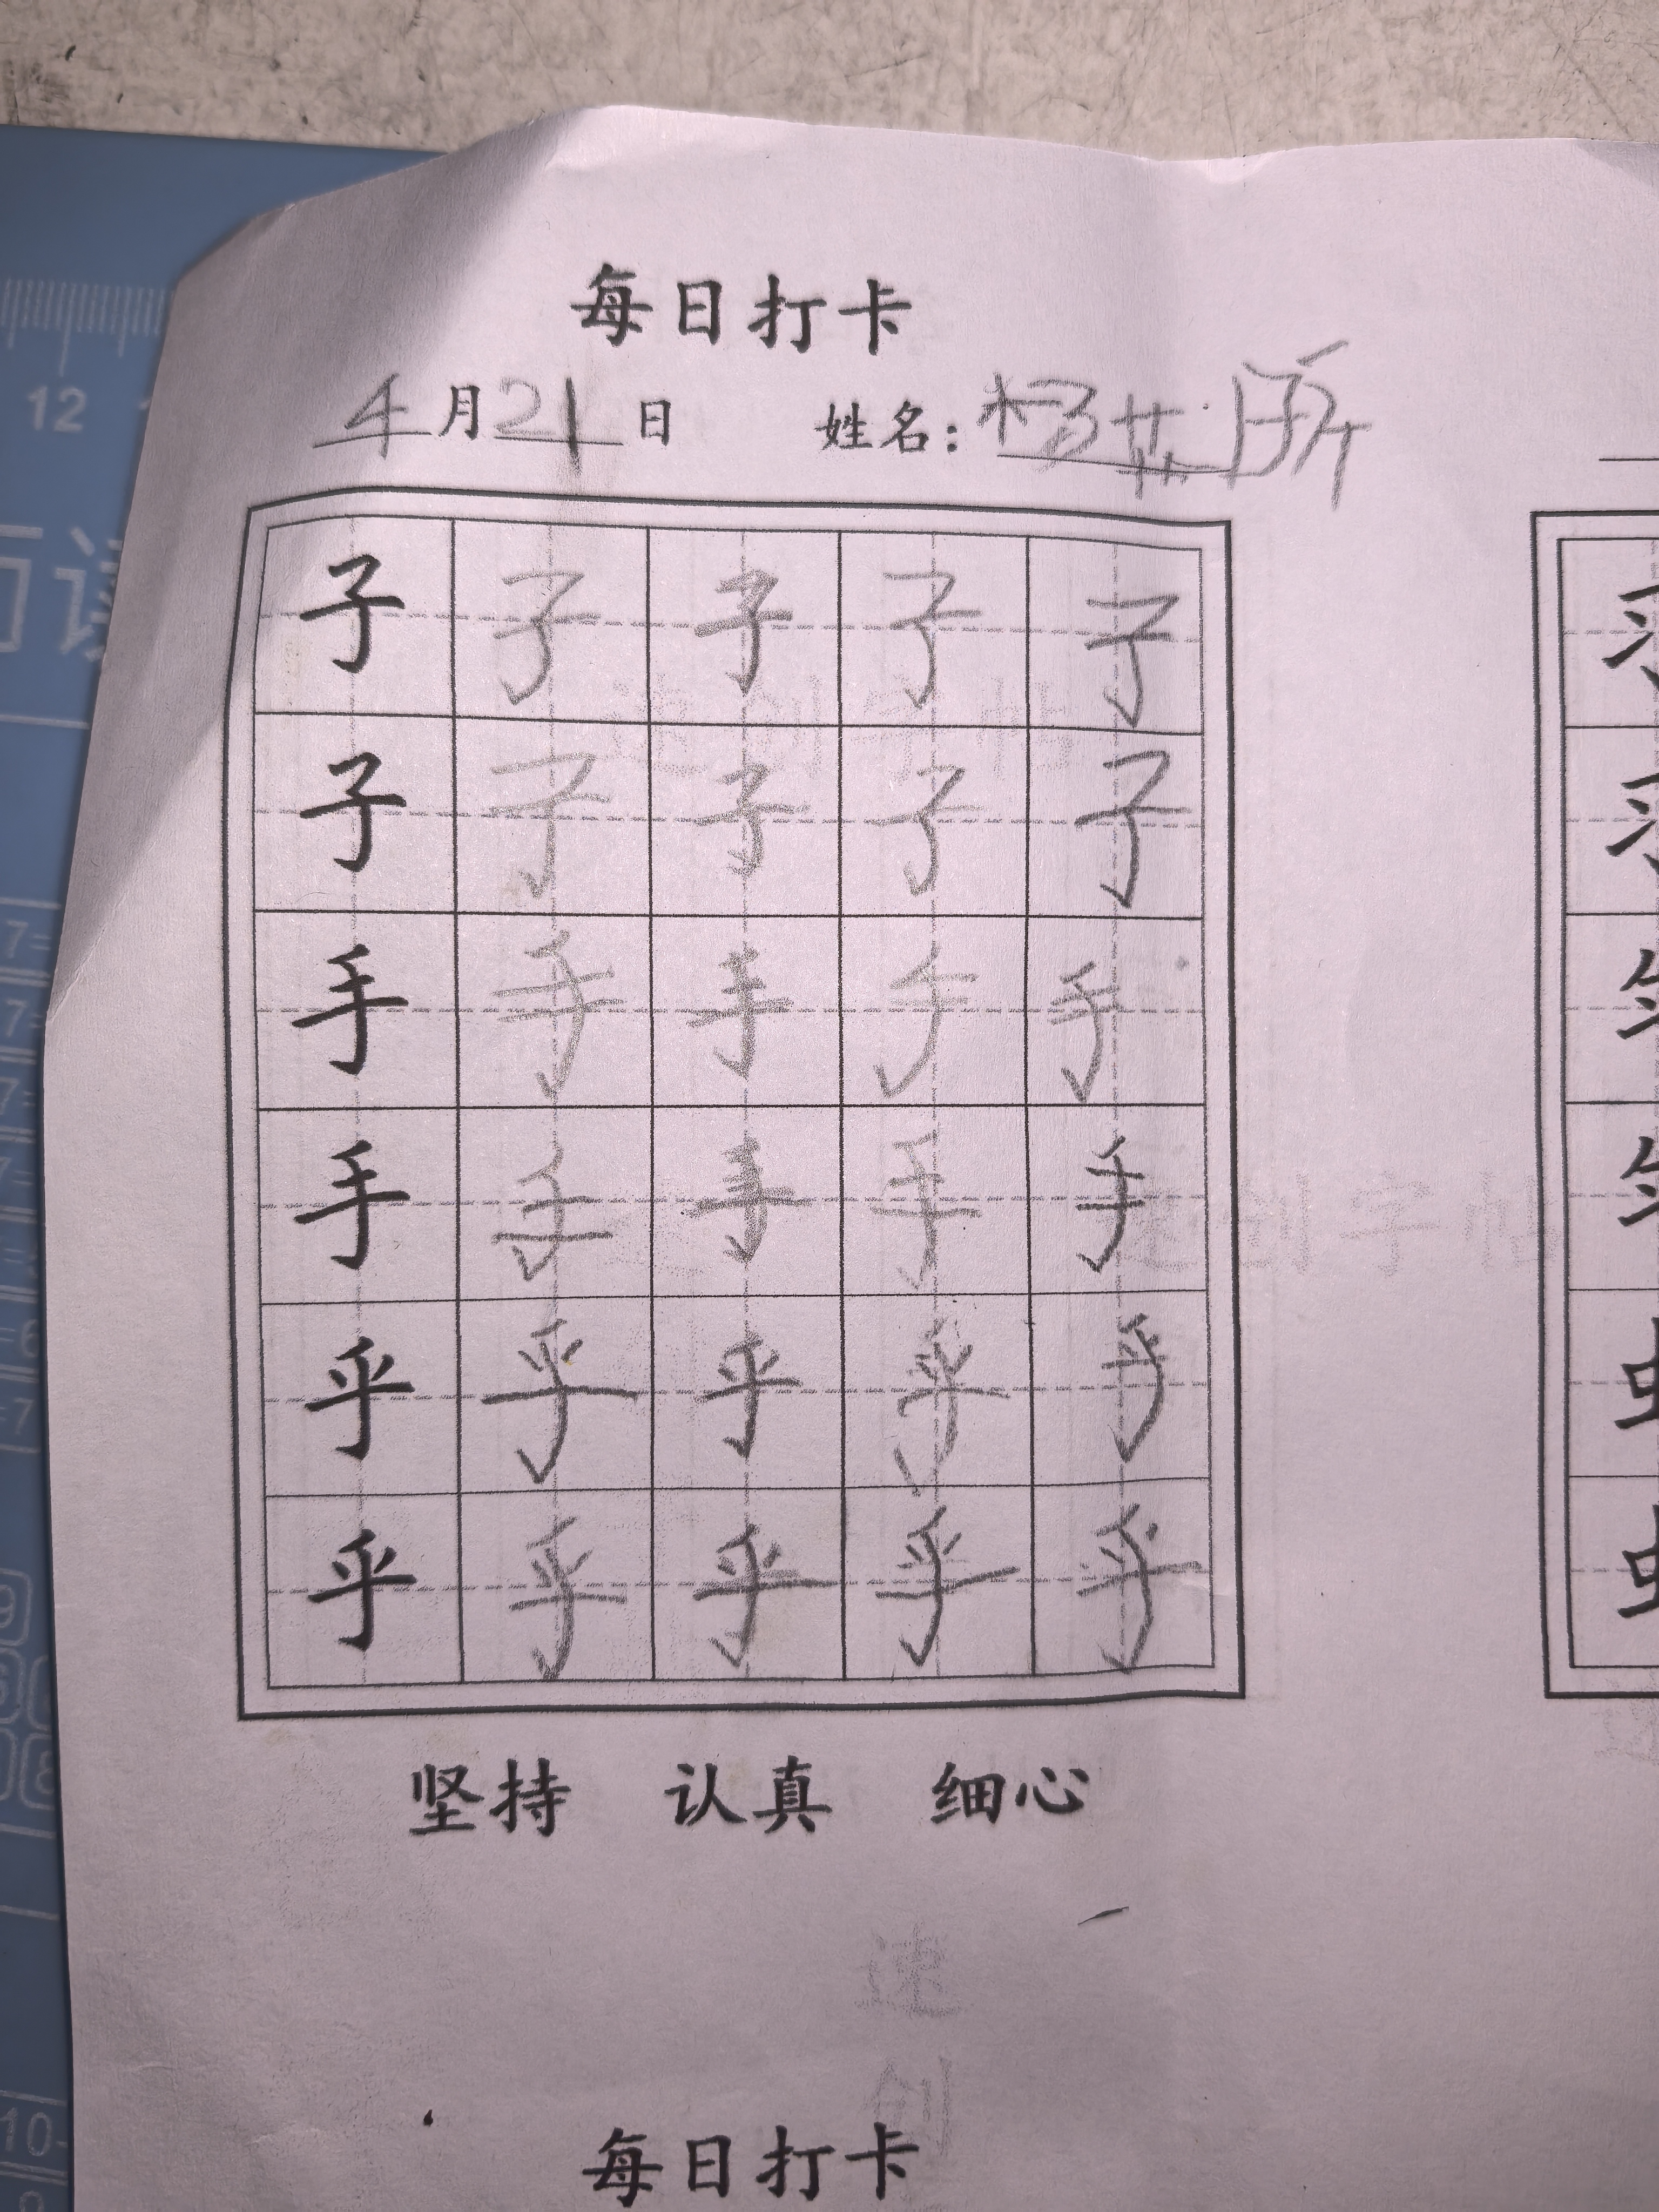 每日打卡
4月21日 姓名:杨
子子子子子
子子子子子
手手手手手
手手手手手
乎乎乎乎乎
乎乎乎乎乎
坚持 认真 细心
速创字帖
速创字帖
速创
每日打卡
12